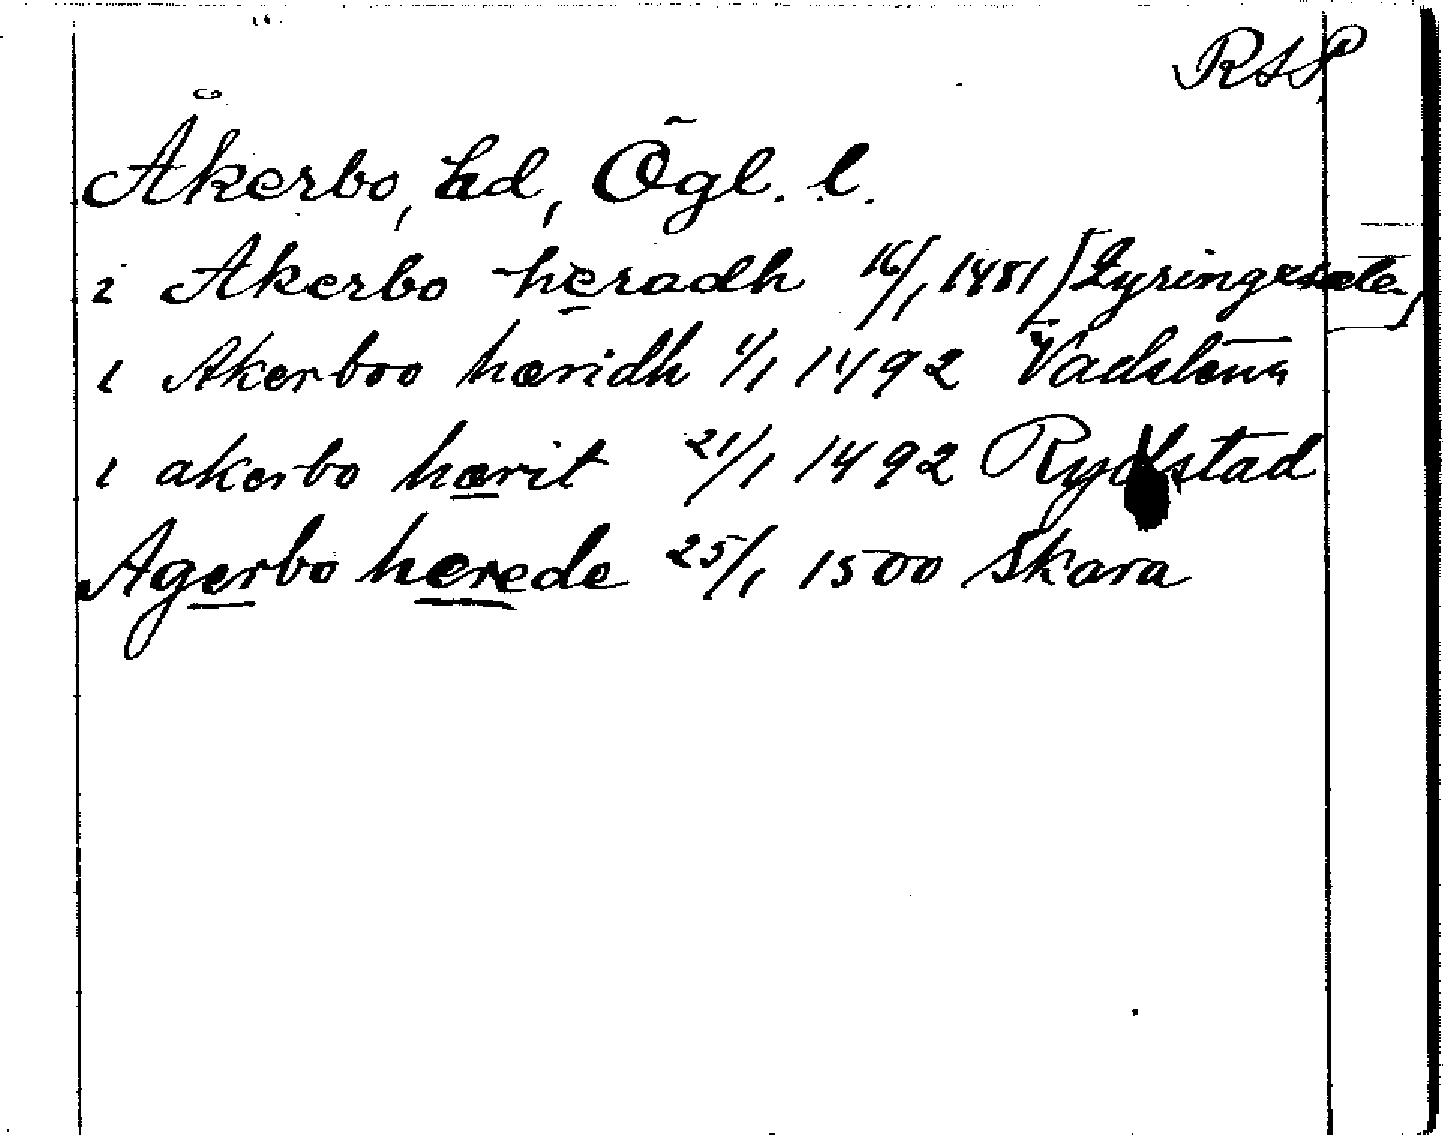 RSP
Åkerbo, hd, Ögl. l.
i Akerbo heradh 16/1 1481 [Lyringesæte]
i Akerboo hæridh 1/1 1492 Vadstena
i akerbo hærit 21/1 1492 Rydstad
Agerbo herede 25/1 1500 Skara